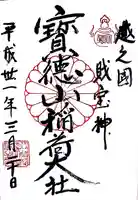 越之國
財宝神
寶徳山稲荷大社
平成廿一年三月二十日